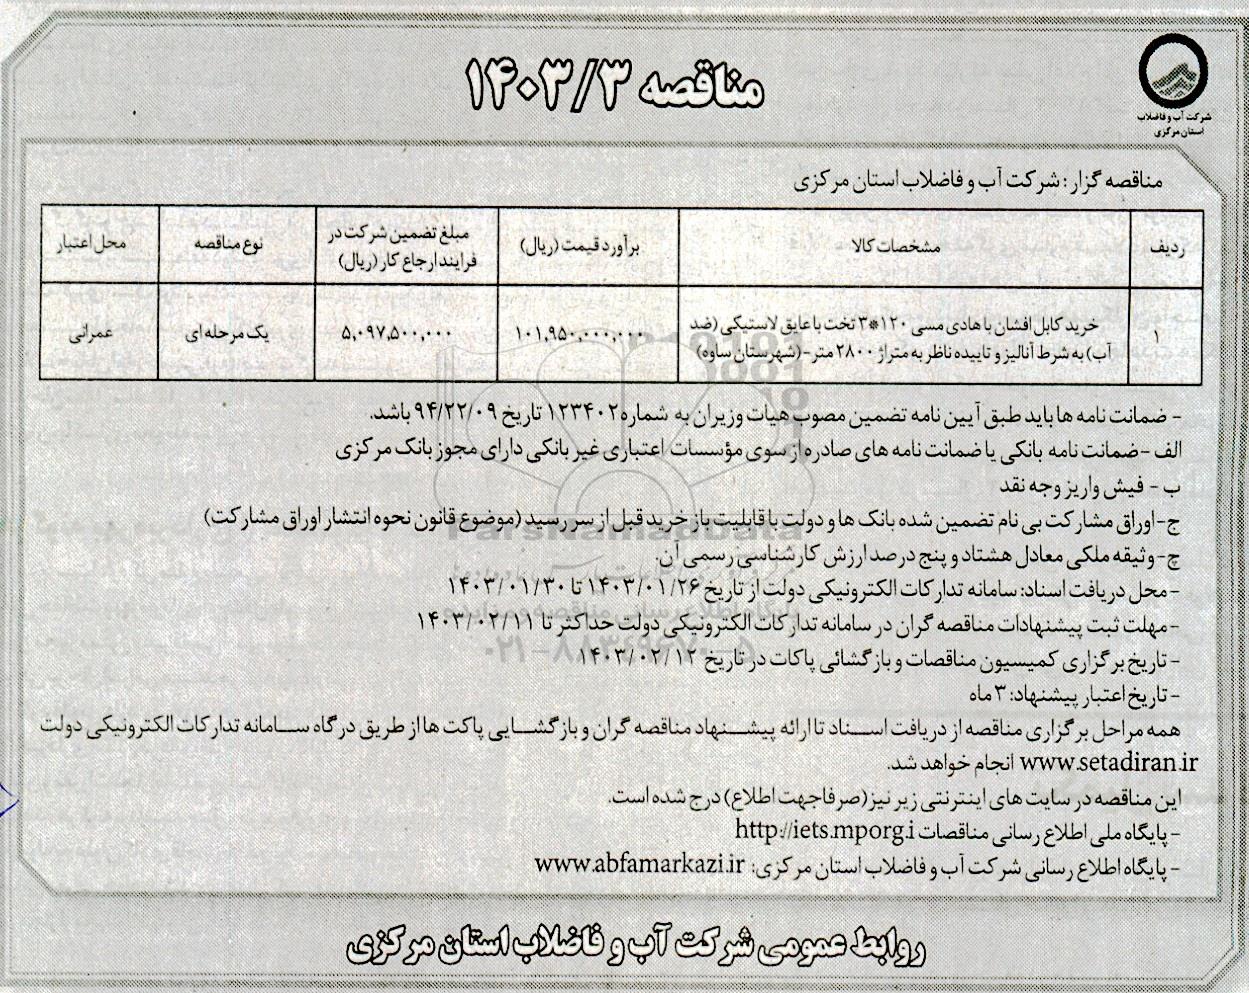 شرکت آب و فاضلاب
استان مرکزی
مناقصه ۱۴۰۳/۳
مناقصه گزار: شرکت آب و فاضلاب استان مرکزی
ردیف | مشخصات کالا | برآورد قیمت (ریال) | مبلغ تضمین شرکت در فرایند ارجاع کار (ریال) | نوع مناقصه | محل اعتبار
۱ | خرید کابل افشان با هادی مسی ۱۲۰*۳ تخت با عایق لاستیکی (ضد آب) به شرط آنالیز و تاییده ناظر به متراژ ۲۸۰۰ متر- (شهرستان ساوه) | ۱۰۱,۹۵۰,۰۰۰,۰۰۰ | ۵,۰۹۷,۵۰۰,۰۰۰ | یک مرحله ای | عمرانی
- ضمانت نامه ها باید طبق آیین نامه تضمین مصوب هیات وزیران به شماره ۱۲۳۴۰۲ تاریخ ۹۴/۲۲/۰۹ باشد.
الف -ضمانت نامه بانکی یا ضمانت نامه های صادره از سوی مؤسسات اعتباری غیر بانکی دارای مجوز بانک مرکزی
ب - فیش واریز وجه نقد
ج-اوراق مشارکت بی نام تضمین شده بانک ها و دولت با قابلیت باز خرید قبل از سررسید (موضوع قانون نحوه انتشار اوراق مشارکت)
چ-وثیقه ملکی معادل هشتاد و پنج درصد ارزش کارشناسی رسمی آن.
-محل دریافت اسناد: سامانه تدارکات الکترونیکی دولت از تاریخ ۱۴۰۳/۰۱/۲۶ تا ۱۴۰۳/۰۱/۳۰
-مهلت ثبت پیشنهادات مناقصه گران در سامانه تدارکات الکترونیکی دولت حداکثر تا ۱۴۰۳/۰۲/۱۱
- تاریخ برگزاری کمیسیون مناقصات و بازگشائی پاکات در تاریخ ۱۴۰۳/۰۲/۱۲
- تاریخ اعتبار پیشنهاد: ۳ ماه
همه مراحل برگزاری مناقصه از دریافت اسناد تا ارائه پیشنهاد مناقصه گران و بازگشایی پاکت ها از طریق درگاه سامانه تدارکات الکترونیکی دولت
www.setadiran.ir انجام خواهد شد.
این مناقصه در سایت های اینترنتی زیر نیز (صرفا جهت اطلاع) درج شده است.
- پایگاه ملی اطلاع رسانی مناقصات http://iets.mporg.i
- پایگاه اطلاع رسانی شرکت آب و فاضلاب استان مرکزی: www.abfamarkazi.ir
روابط عمومی شرکت آب و فاضلاب استان مرکزی
ParsNamadData
۰۲۱-۸۸۳۴۹۶۷۰-۵